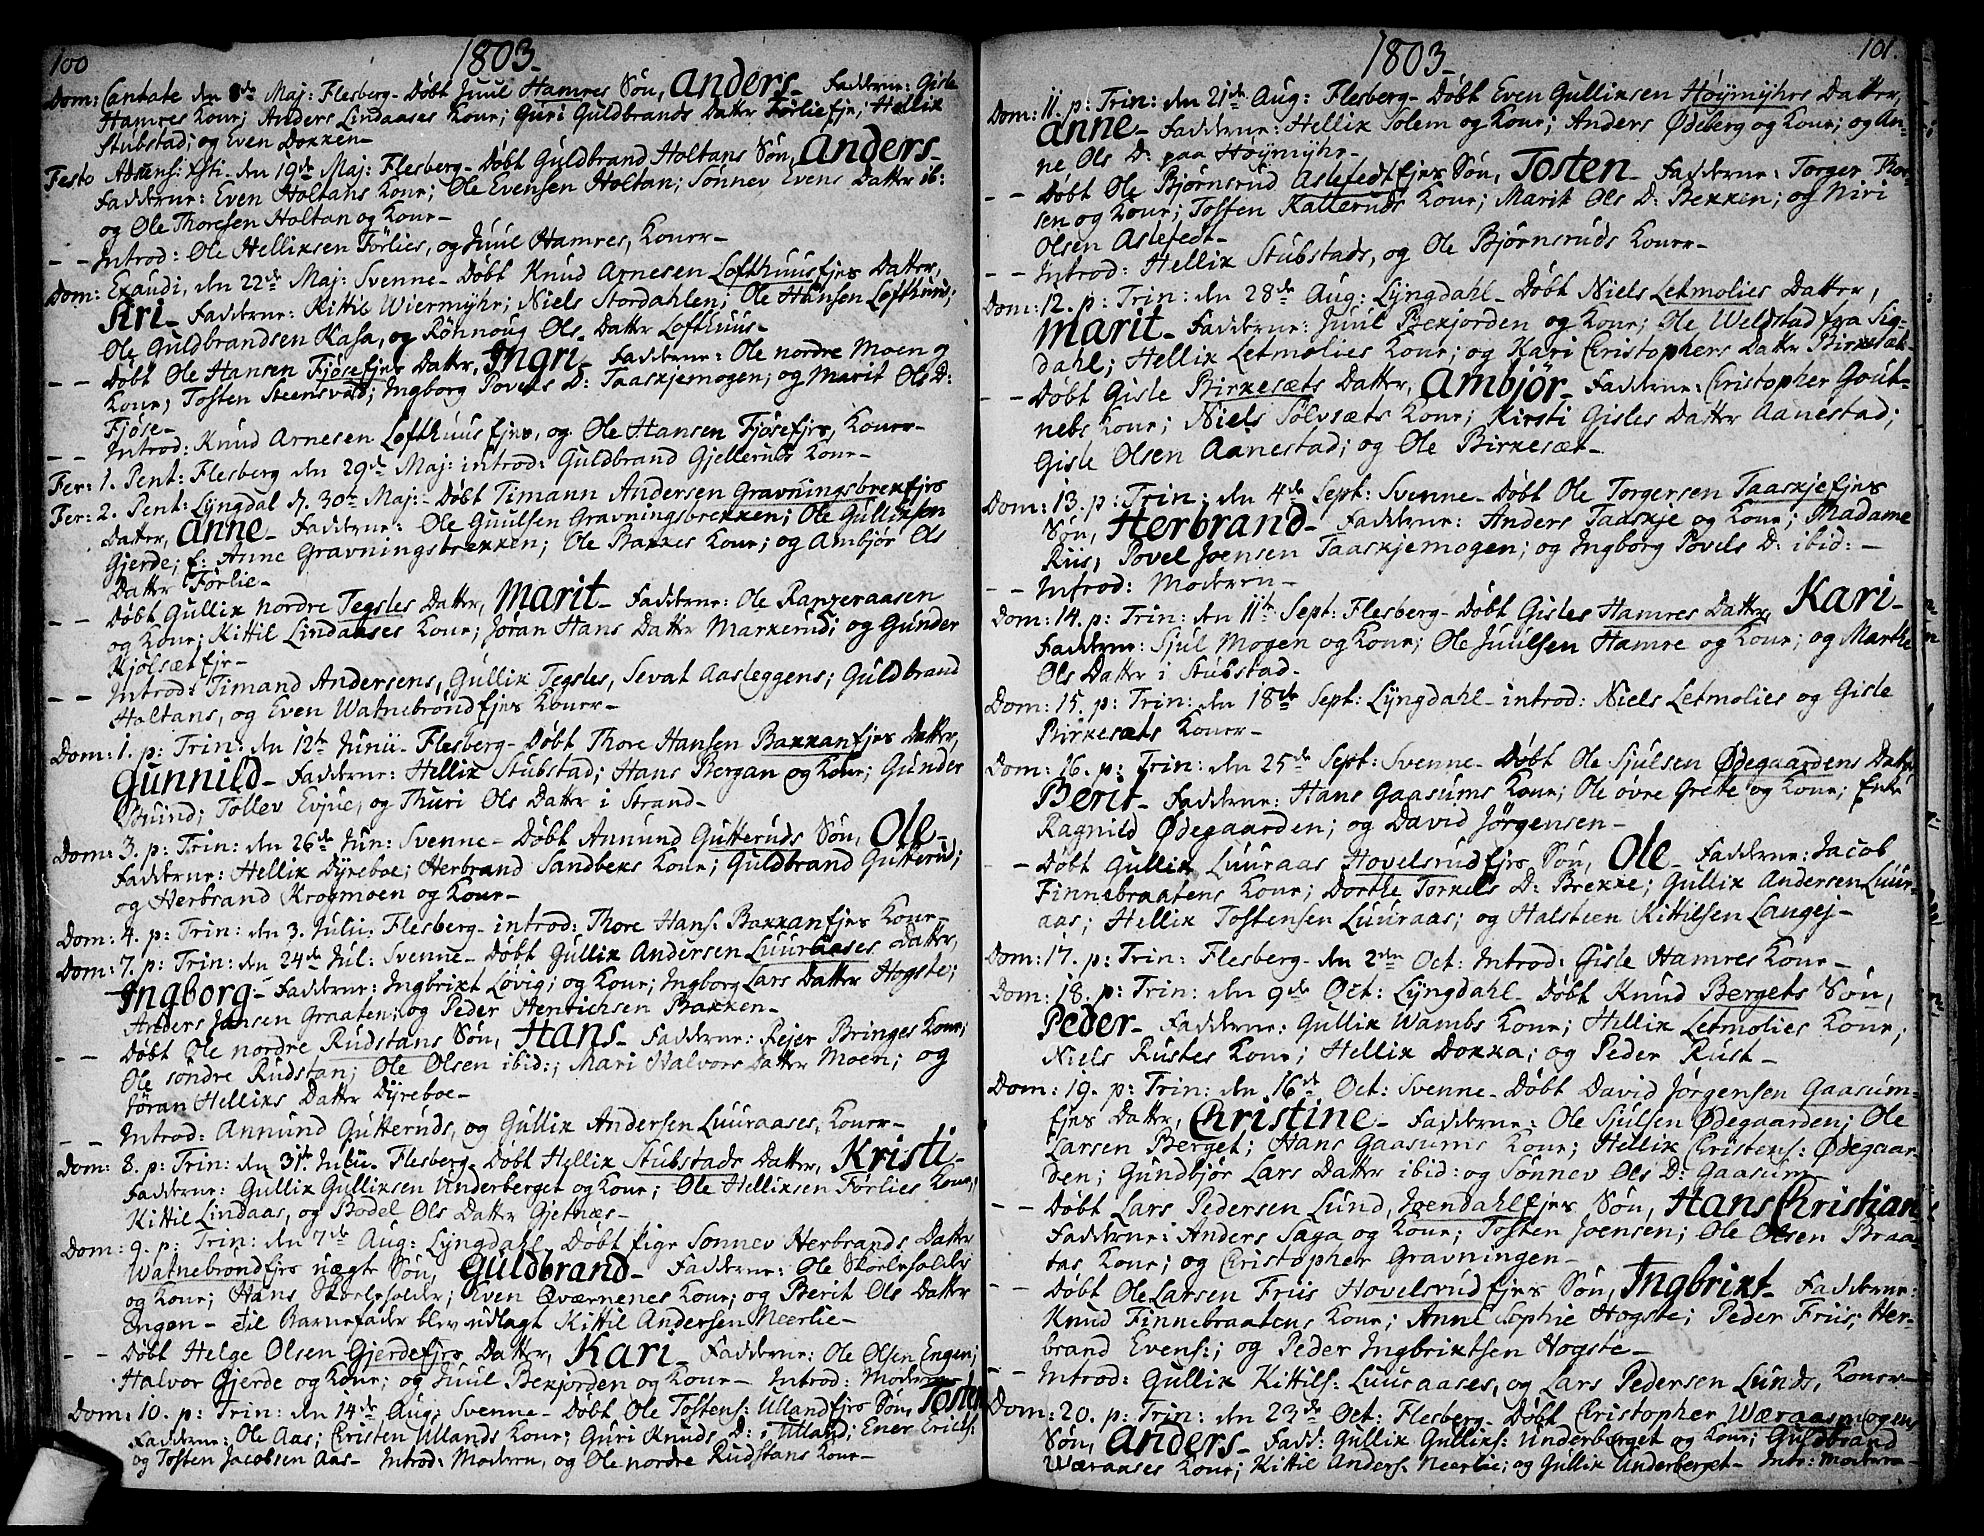 100
1803.
Dom: Cantate den 8de Maj: Flesberg- Døbt Juul Hamres Søn, Anders- Fadderne: Gisle
Hamres Kone; Anders Lindaases Kone; Guri Guldbrands DatterFørlie Ejr; Hellik
Stubstad; og Even Dokken-
Festo Adscens: Xsti- den 19de Maj: Flesberg- Døbt Guldbrand Holtans Søn, Anders-
Fadderne: Even Holtans Kone; Ole Evensen Holtan; Sønnev Evens Datter ib:
og Ole Thoresen Holtan og Kone-
- - Introd: Ole Helliksen Førlies, og Juul Hamres, Koner-
Dom: Exaudi, den 22de Maj: Svenne- Døbt Knud Arnesen Lofthuus Ejes Datter,
Siri- Fadderne: Kittil Wiermyhr; Niels Stordahlen; Ole Hansen Lofthuus;
Ole Guldbrandsen Kasa, og Rønnoug Ols Datter Lofthuus-
- - Døbt Ole Hansen Fjøse Ejes Datter, Ingri- Fadderne: Ole nordre Moen og
Kone; Tosten Steensvad; Ingborg Povels D: Taaskjemogen; og Marit Ols D:
Fjøse-
- - Introd: Knud Arnesen Lofthuus Ejes, og Ole Hansen Fjøse Ejes, Koner-
Fer: 1. Pent: Flesberg den 29de Maj: introd: Guldbrand Gjellernes Kone-
Fer: 2. Pent: Lyngdal d. 30te Maj:- Døbt Timann Andersen Gravningsbrek Ejes
Datter, Anne- Fadderne: Ole Guulsen Gravningsbrekken; Ole Gulliksen
Gjerde; E: Anne Gravningsbrekken; Ole Bakkes Kone; og Ambjør Ols
Datter Førlie-
- - Døbt Gullik nordre Tegsles Datter, Marit- Fadderne: Ole Ranzeraasen
og Kone; Kittil Lindaases Kone; Jøran Hans Datter Markerud; og Gunder
Kjølsæt Ejr-
- - Introd: Timand Andersens, Gullik Tegsles, Sevat Aasleggens; Guldbrand
Holtans, og Even Watnebrønd Ejes Koner-
Dom: 1. p: Trin: den 12te Junii- Flesberg- Døbt Thore Hansen Bakkan Ejes Datter,
Gunnild- Fadderne: Hellik Stubstad; Hans Bergan og Kone; Gunder
Bruind; Tollev Evjue, og Thuri Ols Datter i Strand-
Dom: 3. p: Trin: den 26de Jun: Svenne- Døbt Annund Gutteruds Søn, Ole-
Fadderne: Hellik Dyreboe; Herbrand Sandbeks Kone; Guldbrand Gutterud;
og Herbrand Krogmoen og Kone-
Dom: 4. p: Trin: den 3. Julii: Flesberg- introd: Thore Hans: Bakkan Ejes Kone-
Dom: 7. p: Trin: den 24de Jul: Svenne- Døbt Gullik Andersen Luuraases Datter,
Ingborg- Fadderne: Ingbrikt Løvig; og Kone; Ingborg Lars Datter Hogste;
Anders Jansen Graaten; og Peder Henrichsen Bakken-
- - Døbt Ole nordre Rudstans Søn, Hans- Fadderne: Rejer Bringes Kone;
Ole søndre Rudstan; Ole Olsen ibid:; Mari Halvors Datter Moen; og
Jøran Helliks Datter Dyreboe-
- - Introd: Annund Gutteruds, og Gullik Andersen Luuraases, Koner-
Dom: 8. p: Trin: den 31te Julii- Flesberg- Døbt Hellik Stubstads Datter, Kristi-
Fadderne: Gullik Gulliksen Underberget og Kone; Ole Helliksen Førlies Kone;
Kittil Lindaas, og Bodel Ols Datter Gjetnæs-
Dom: 9. p: Trin: den 7de Aug: Lyngdahl- Døbt Pige Sønnev Herbrands Datter
Watnebrønd Ejes uægte Søn, Guldbrand- Fadderne: Ole Skoleholder
og Kone; Hans Skoleholder; Even Qværnenes Kone; og Berit Ols Datter
Engen- Til Barnefader blev udlagt Kittil Andersen Neerlie-
- - Døbt Helge Olsen Gjerde Ejes Datter, Kari- Fadderne: Ole Olsen Engen;
Halvor Gjerde og Kone; og Juul Bekjorden og Kone- Introd: Moderen-
Dom: 10. p: Trin: den 14de Aug: Svenne- Døbt Ole Tostens: Ulland Ejes Søn, Tosten
Fadderne: Ole Aas; Christen Ullands Kone; Guri Knuds D: i Ulland; Ener Erichs:
og Tosten Jacobsen Aas- Introd: Moderen, og Ole nordre Rudstans Kone-
101.
1803.
Dom: 11. p: Trin: den 21de Aug: Flesberg- Døbt Even Gulliksen Høymyhrs Datter,
Anne- Fadderne: Hellik Solem og Kone; Anders Ødeberg og Kone; og An-
ne Ols D: paa Høymyhr-
- - Døbt Ole Bjørnsrud Aslefedt Ejes Søn, Tosten- Fadderne: Torger Thor-
sen og Kone; Tosten Kalleruds Kone; Marit Ols D: Bekken; og Niri
Olsen Aslefedt-
- - Introd: Hellik Stubstads, og Ole Bjørnsruds Koner-
Dom: 12. p: Trin: den 28de Aug: Lyngdahl- Døbt Niels Letmolies Datter,
Marit- Fadderne: Juul Bekjorden og Kone; Ole Weldstad fra Sig-
dahl; Hellik Letmolies Kone; og Kari Christophers Datter Birkesæt-
- - Døbt Gisle Birkesæts Datter, Ambjør- Fadderne: Christopher Gout-
nebs Kone; Niels Sølvsæts Kone; Kirsti Gisles Datter Aanestad;
Gisle Olsen Aanestad; og Ole Birkesæt-
Dom: 13. p: Trin: den 4de Sept: Svenne- Døbt Ole Torgersen Taaskje Ejes
Søn, Herbrand- Fadderne: Anders Taaskje og Kone; Madame
Riis; Povel Joensen Taaskjemogen; og Ingborg Povels D: ibid:-
- - Introd: Moderen-
Dom: 14. p: Trin: den 11te Sept: Flesberg- Døbt Gisles Hamres Datter, Kari-
Fadderne: Sjul Mogen og Kone; Ole Juulsen Hamre og Kone; og Marthe
Ols Datter i Stubstad-
Dom: 15. p: Trin: den 18de Sept: Lyngdahl- introd: Niels Letmolies og Gisle
Birkesæts Koner-
Dom: 16. p: Trin: den 25de Sept: Svenne- Døbt Ole Sjulsen Ødegaardens Datter
Berit- Fadderne: Hans Gaasums Kone; Ole øvre Grette og Kone; Enke
Ragnild Ødegaarden; og David Jørgensen-
- - Døbt Gullik Luuraas Hovelsrud Ejes Søn, Ole- Fadderne: Jacob
Finnebraatens Kone; Dorthe Torkels D: Brekke; Gullik Andersen Luur-
aas; Hellik Tostensen Luuraas; og Halsteen Kittilsen Langej-
Dom: 17. p: Trin: Flesberg- den 2den Oct: Introd: Gisle Hamres Kone-
Dom: 18. p: Trin: den 9de Oct: Lyngdahl- Døbt Knud Bergets Søn,
Peder- Fadderne: Gullik Wambs Kone; Hellik Letmolies Kone;
Niels Rustes Kone; Hellik Dokka; og Peder Rust-
Dom: 19. p: Trin: den 16de Oct: Svenne- Døbt David Jørgensen Gaasum-
Ejes Datter, Christine- Fadderne: Ole Sjulsen Ødegaarden; Ole
Larsen Berget; Hans Gaasums Kone; Hellik Christens: Ødegaar-
den; Gundbjør Lars Datter ibid: og Sønnev Ols D: Gaasum-
- - Døbt Lars Pedersen Lund, Joendahl Ejes Søn, Hans Christian-
Fadderne: Anders Saga og Kone; Tosten Joensen; Ole Olsen Braa-
tas Kone; og Christopher Gravningen-
- Døbt Ole Larsen Friis Hovelsrud Ejes Søn, Ingbrikt- Fadderne:
Knud Finnebraatens Kone; Anne Sophie Hogste; Peder Friis; Her-
brand Evens:; og Peder Ingbriktsen Hogste-
- Introd: Gullik Kittils: Luuraases, og Lars Pedersen Lunds, Koner-
Dom: 20. p: Trin: den 23de Oct: Flesberg- Døbt Christopher Wæraasmogens
Søn, Anders- Fadd: Gullik Gulliks: Underberget og Kone; Guldbrand
Wæraases Kone; Kittil Anders: Neerlie; og Gullik Underberget- Intr: Moderen-